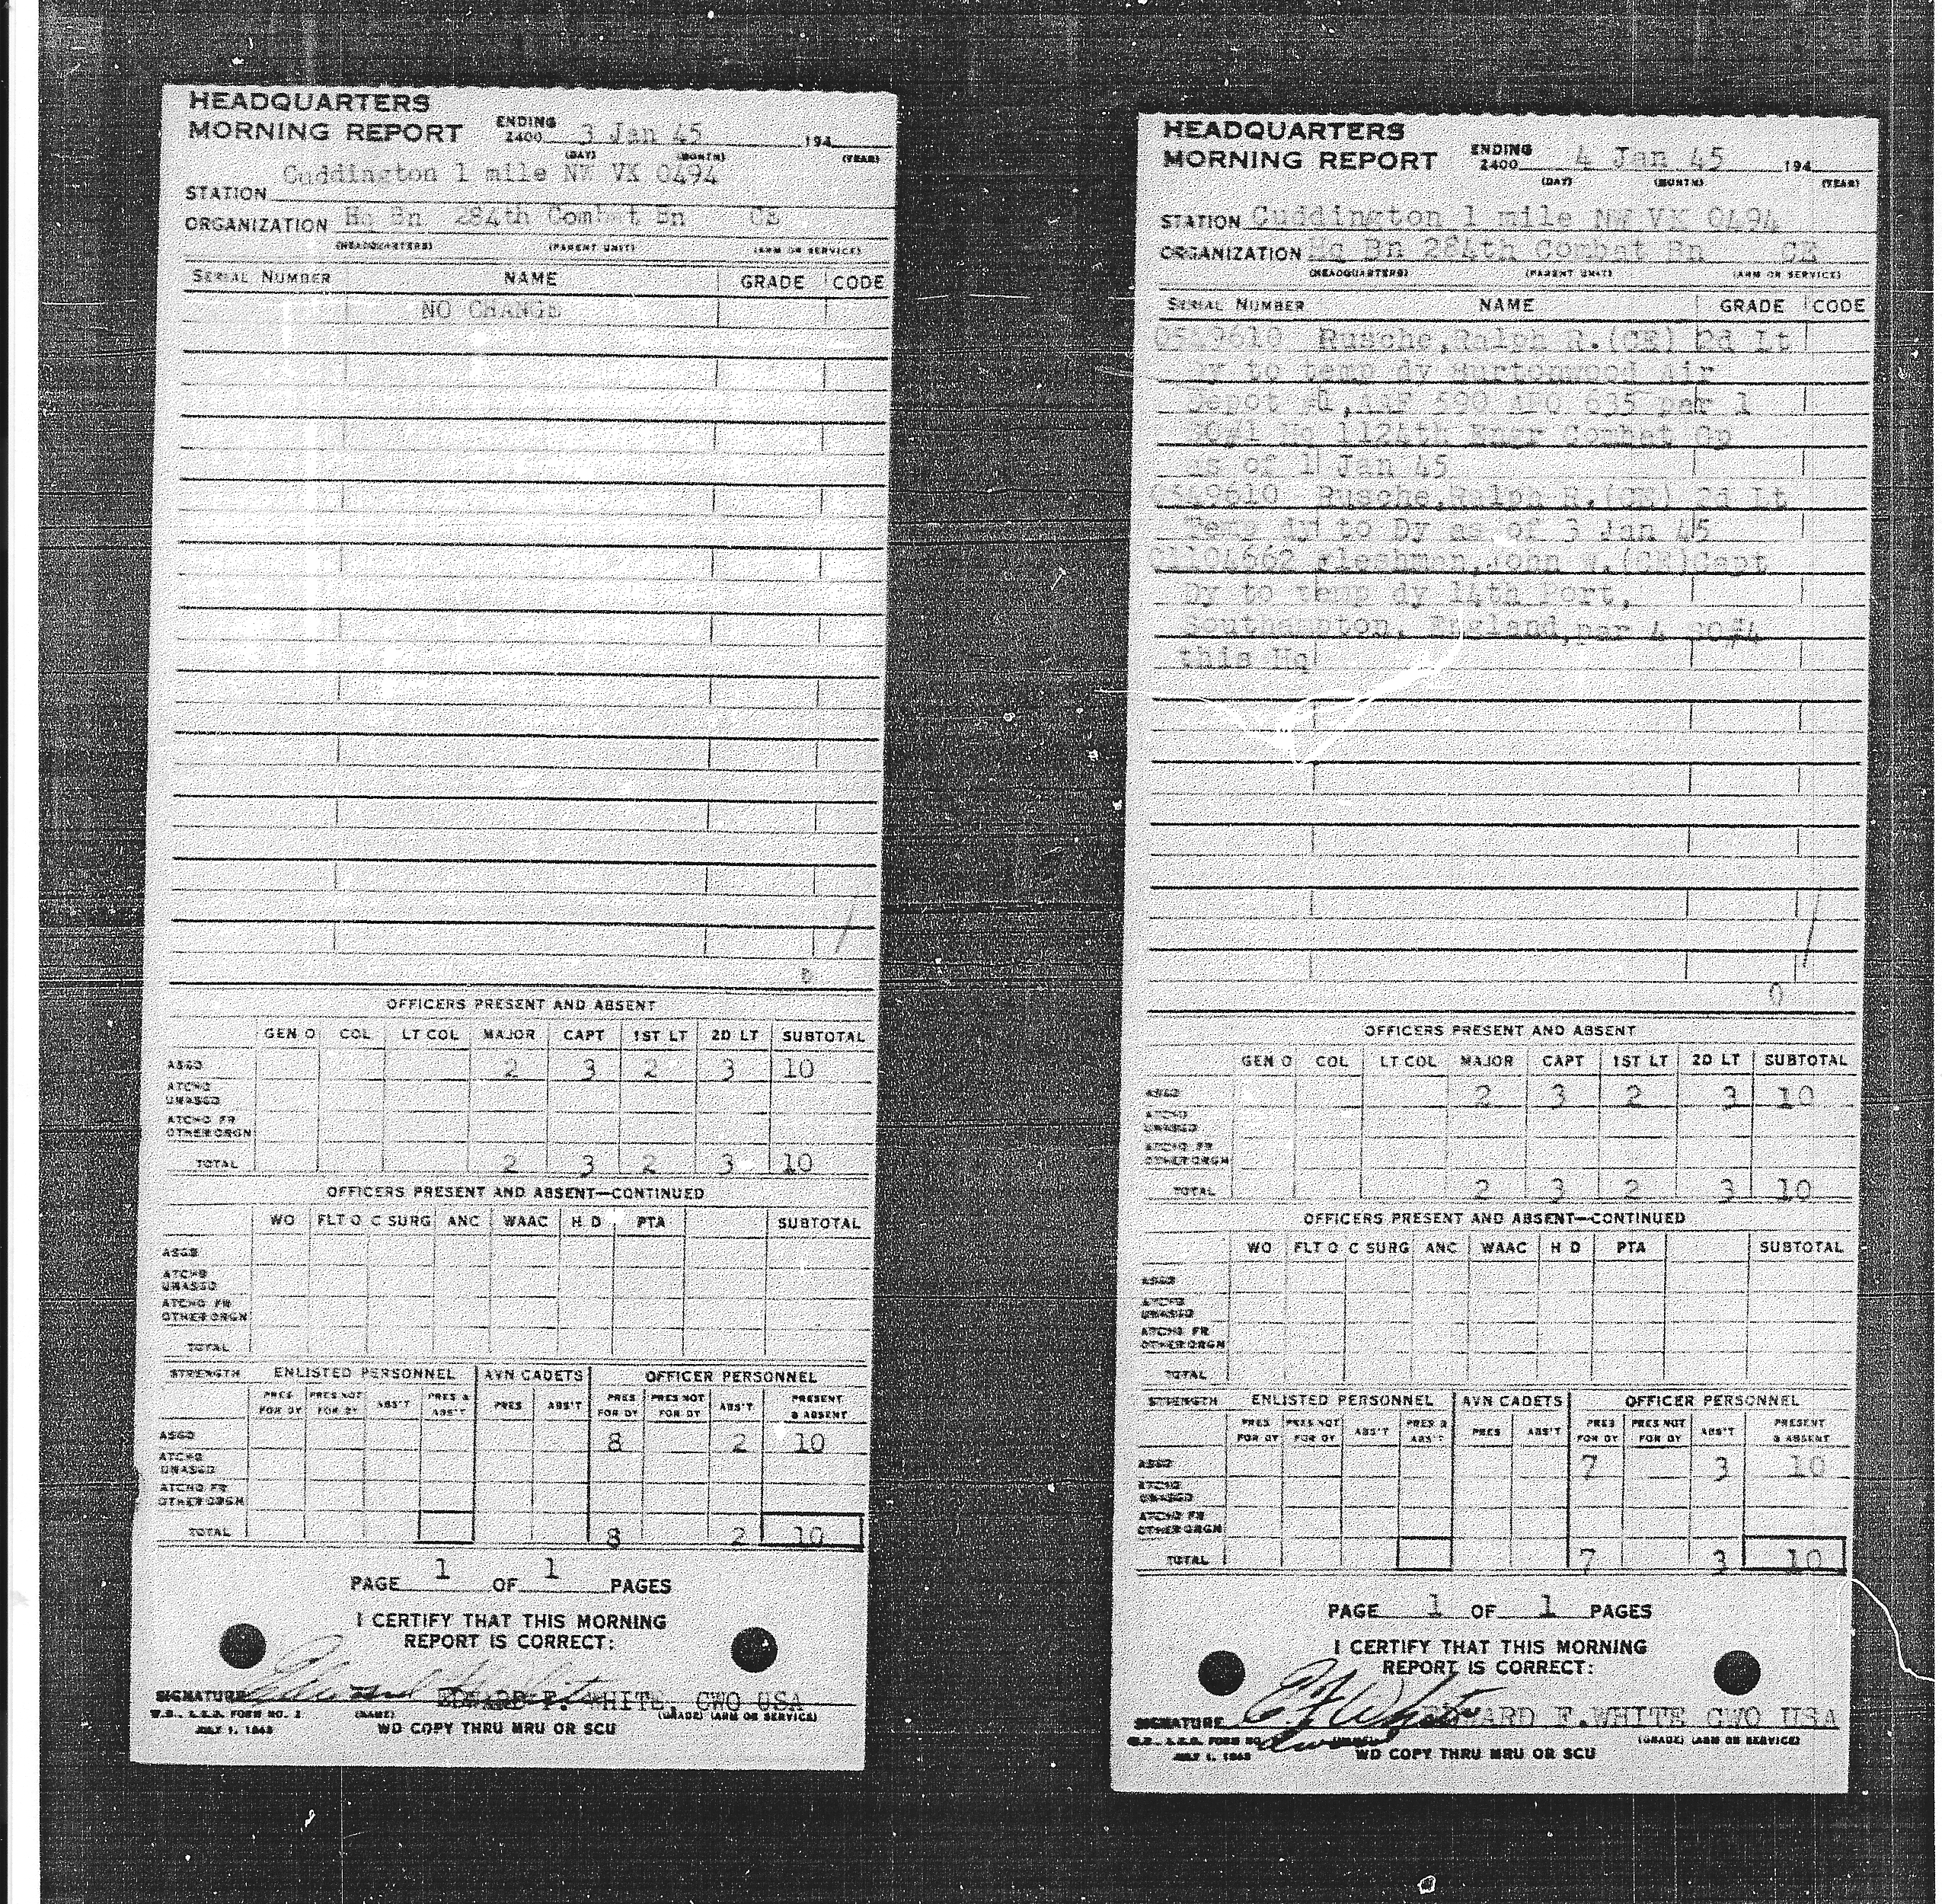 HEADQUARTERS
MORNING REPORT ENDING 2400 3 Jan 45 194
(DAY) (MONTH) (YEAR)
Cuddington 1 mile NW VK 0494
STATION
ORGANIZATION Hq Bn 284th Combat Bn CE
(HEADQUARTERS) (PARENT UNIT) (ARM OR SERVICE)
SERIAL NUMBER NAME GRADE CODE
NO CHANGE
OFFICERS PRESENT AND ABSENT
GEN O COL LT COL MAJOR CAPT 1ST LT 2D LT SUBTOTAL
ASGD 2 3 2 3 10
ATCHD UNASGD
ATCHD FR OTHER ORGN
TOTAL 2 3 2 3 10
OFFICERS PRESENT AND ABSENT—CONTINUED
WO FLT O C SURG ANC WAAC H D PTA SUBTOTAL
ASGD
ATCHD UNASGD
ATCHD FR OTHER ORGN
TOTAL
STRENGTH ENLISTED PERSONNEL AVN CADETS OFFICER PERSONNEL
PRES FOR DY PRES NOT FOR DY ABS'T PRES & ABS'T PRES ABS'T PRES FOR DY PRES NOT FOR DY ABS'T PRESENT & ABSENT
ASGD 8 2 10
ATCHD UNASGD
ATCHD FR OTHER ORGN
TOTAL 8 2 10
PAGE 1 OF 1 PAGES
I CERTIFY THAT THIS MORNING
REPORT IS CORRECT:
SIGNATURE EDWARD F. WHITE, CWO USA
(NAME) (GRADE) (ARM OR SERVICE)
JULY 1, 1943
WD COPY THRU MRU OR SCU
HEADQUARTERS
MORNING REPORT ENDING 2400 4 Jan 45 194
(DAY) (MONTH) (YEAR)
STATION Cuddington 1 mile NW VK 0494
ORGANIZATION Hq Bn 284th Combat Bn CE
(HEADQUARTERS) (PARENT UNIT) (ARM OR SERVICE)
SERIAL NUMBER NAME GRADE CODE
0549610 Rusche,Ralph R.(CE) 2d Lt
Dy to temp dy Burtonwood Air
Depot #1,AAF 590 APO 635 par 1
SO#1 Hq 1124th Engr Combat Gp
as of 1 Jan 45
0549610 Rusche,Ralph R.(CE) 2d Lt
Temp dy to Dy as of 3 Jan 45
01104662 Fleshman,John W.(CE)Capt
Dy to temp dy 14th Port,
Southampton, England,par 4 SO#4
this Hq
0
OFFICERS PRESENT AND ABSENT
GEN O COL LT COL MAJOR CAPT 1ST LT 2D LT SUBTOTAL
ASGD 2 3 2 3 10
ATCHD UNASGD
ATCHD FR OTHER ORGN
TOTAL 2 3 2 3 10
OFFICERS PRESENT AND ABSENT—CONTINUED
WO FLT O C SURG ANC WAAC H D PTA SUBTOTAL
ASGD
ATCHD UNASGD
ATCHD FR OTHER ORGN
TOTAL
STRENGTH ENLISTED PERSONNEL AVN CADETS OFFICER PERSONNEL
PRES FOR DY PRES NOT FOR DY ABS'T PRES & ABS'T PRES ABS'T PRES FOR DY PRES NOT FOR DY ABS'T PRESENT & ABSENT
ASGD 7 3 10
ATCHD UNASGD
ATCHD FR OTHER ORGN
TOTAL 7 3 10
PAGE 1 OF 1 PAGES
I CERTIFY THAT THIS MORNING
REPORT IS CORRECT:
SIGNATURE EDWARD F.WHITE CWO USA
(GRADE) (ARM OR SERVICE)
JULY 1, 1943
WD COPY THRU MRU OR SCU